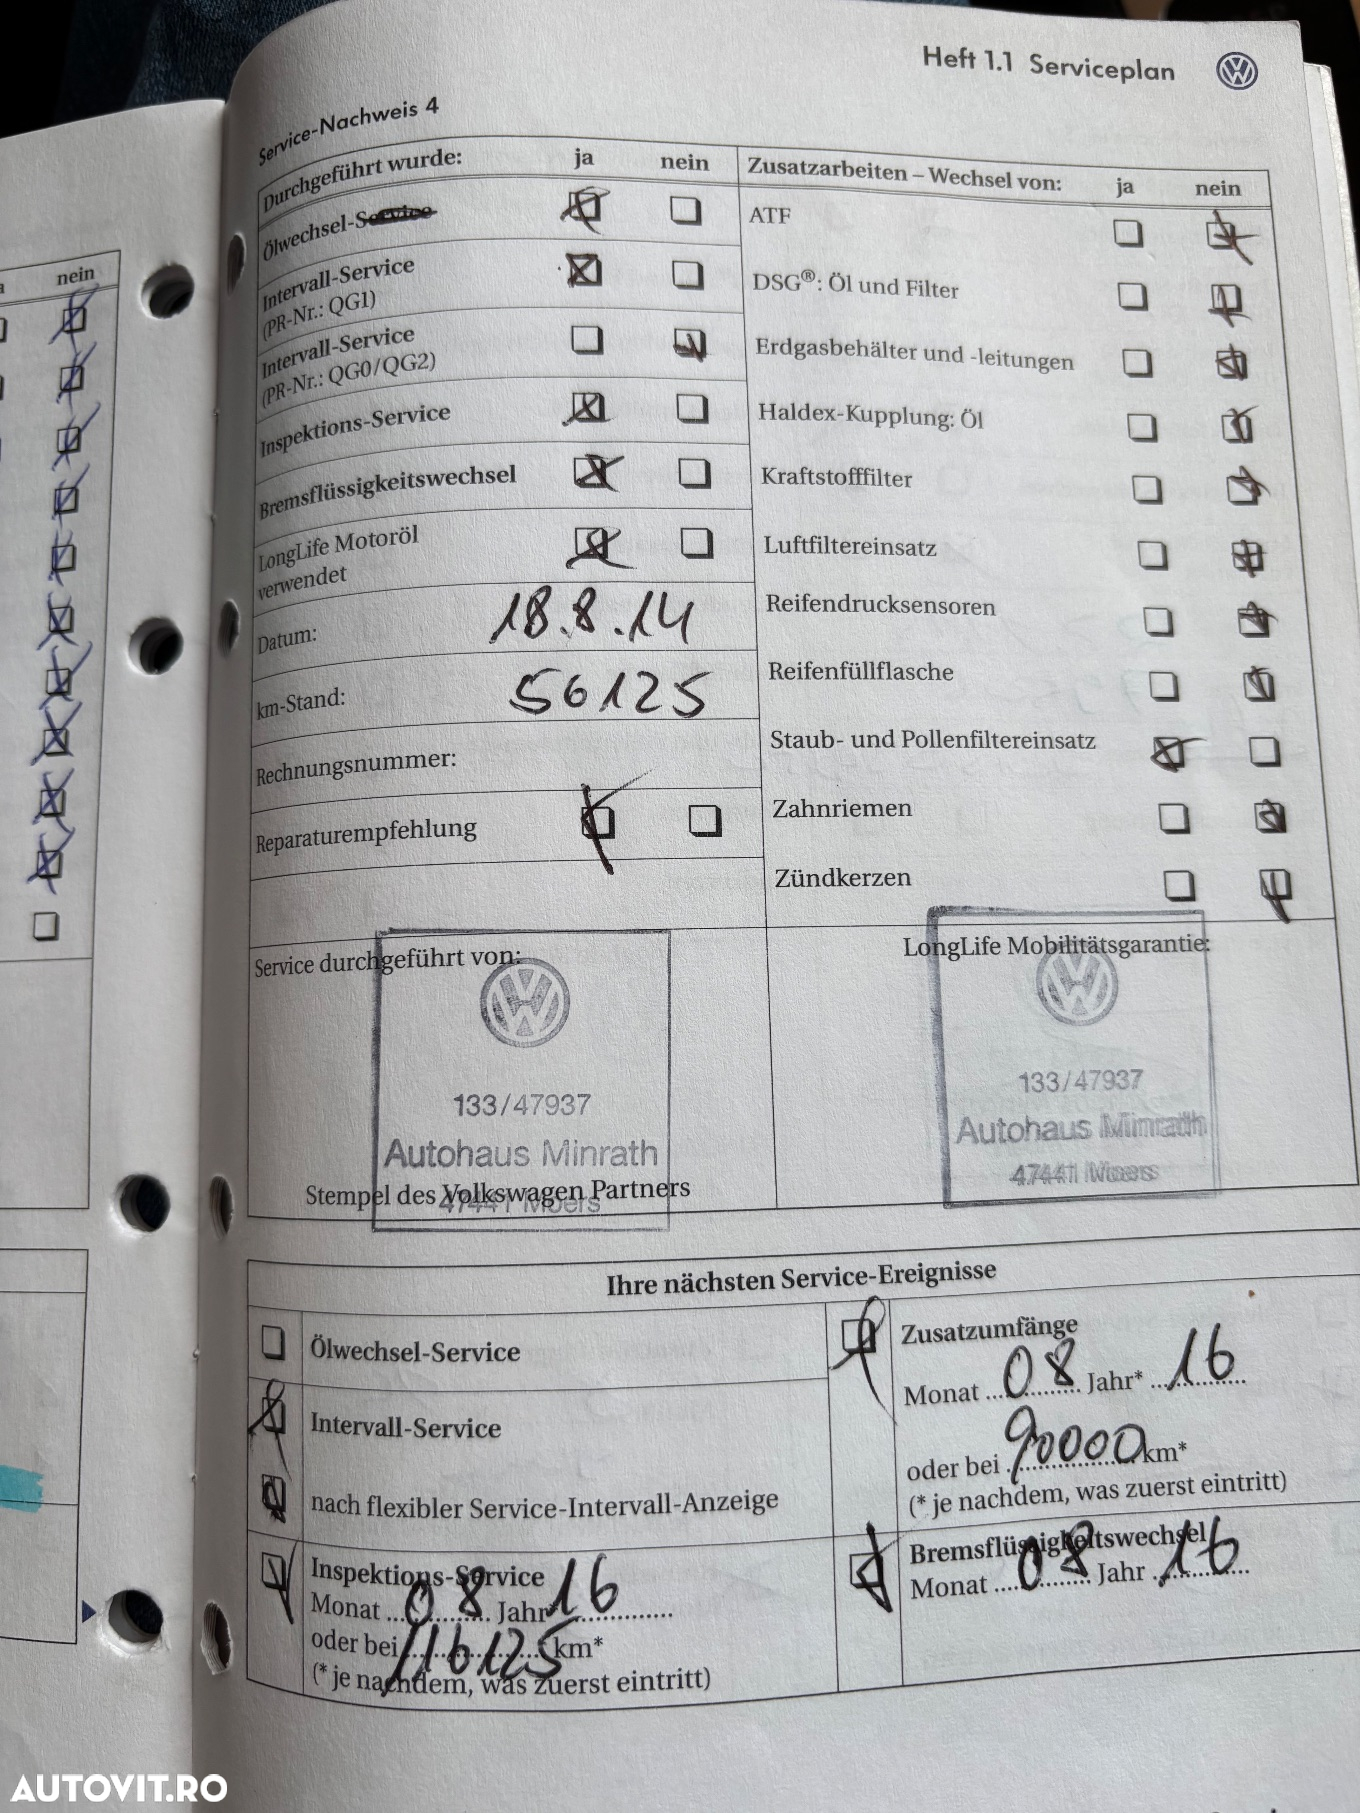 Heft 1.1 Serviceplan
Service-Nachweis 4
nein
Durchgeführt wurde: ja nein
Ölwechsel-Service
Intervall-Service
(PR-Nr.: QG1)
Intervall-Service
(PR-Nr.: QG0/QG2)
Inspektions-Service
Bremsflüssigkeitswechsel
LongLife Motoröl
verwendet
Datum: 18.8.14
km-Stand: 56125
Rechnungsnummer:
Reparaturempfehlung
Zusatzarbeiten – Wechsel von: ja nein
ATF
DSG®: Öl und Filter
Erdgasbehälter und -leitungen
Haldex-Kupplung: Öl
Kraftstofffilter
Luftfiltereinsatz
Reifendrucksensoren
Reifenfüllflasche
Staub- und Pollenfiltereinsatz
Zahnriemen
Zündkerzen
Service durchgeführt von:
133/47937
Autohaus Minrath
47441 Moers
Stempel des Volkswagen Partners
LongLife Mobilitätsgarantie:
133/47937
Autohaus Minrath
47441 Moers
Ihre nächsten Service-Ereignisse
Ölwechsel-Service
Intervall-Service
nach flexibler Service-Intervall-Anzeige
Inspektions-Service
Monat 08 Jahr* 16
oder bei 116125 km*
(* je nachdem, was zuerst eintritt)
Zusatzumfänge
Monat 08 Jahr* 16
oder bei 90000 km*
(* je nachdem, was zuerst eintritt)
Bremsflüssigkeitswechsel
Monat 08 Jahr 16
AUTOVIT.RO